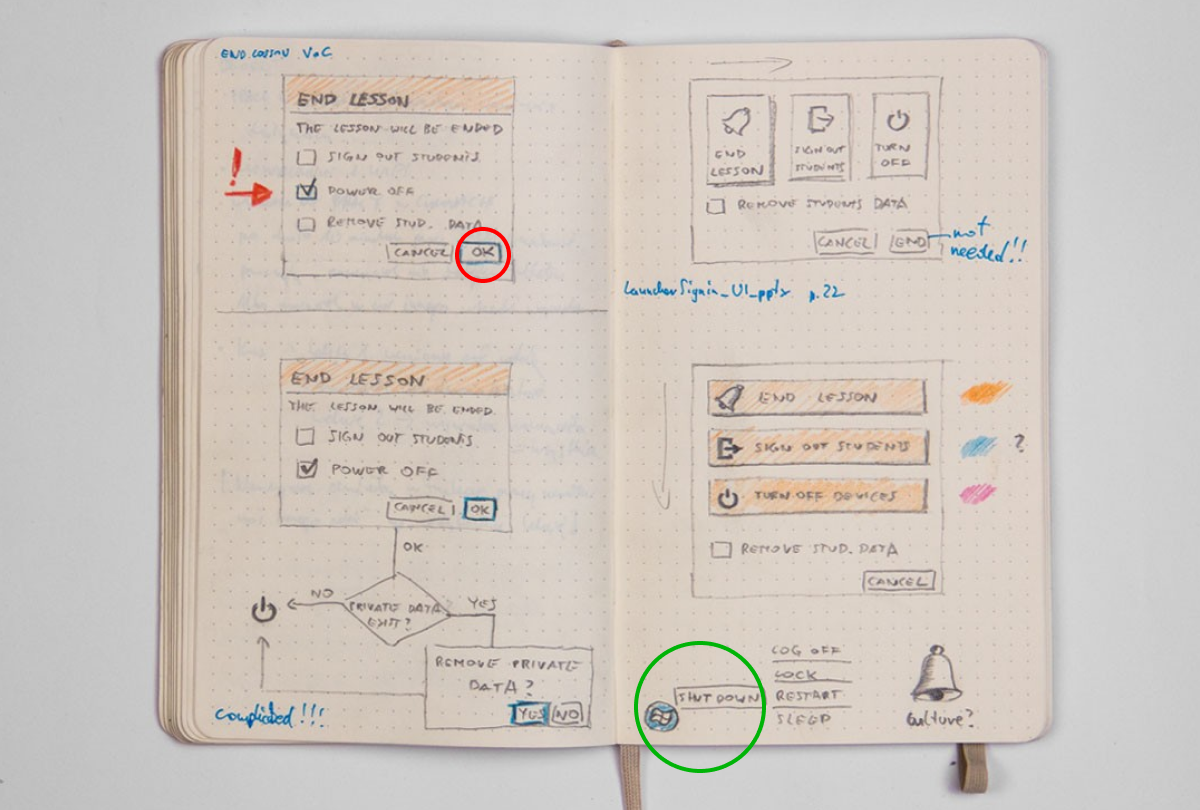 END LESSON V.C
END LESSON
THE LESSON WILL BE ENDED
SIGN OUT STUDENTS
!
POWER OFF
REMOVE STUD. DATA
CANCEL OK
END LESSON
THE LESSON WILL BE ENDED.
SIGN OUT STUDENTS
POWER OFF
CANCEL OK
OK
NO
PRIVATE DATA
EXIST?
YES
REMOVE PRIVATE
DATA?
YES NO
Complicated!!!
END
LESSON
SIGN OUT
STUDENTS
TURN
OFF
REMOVE STUDENTS DATA
CANCEL END
not
needed!!
LauncherSignin_UI_pptx p.22
END LESSON
SIGN OUT STUDENTS
?
TURN OFF DEVICES
REMOVE STUD. DATA
CANCEL
SHUT DOWN
LOG OFF
LOCK
RESTART
SLEEP
Culture?